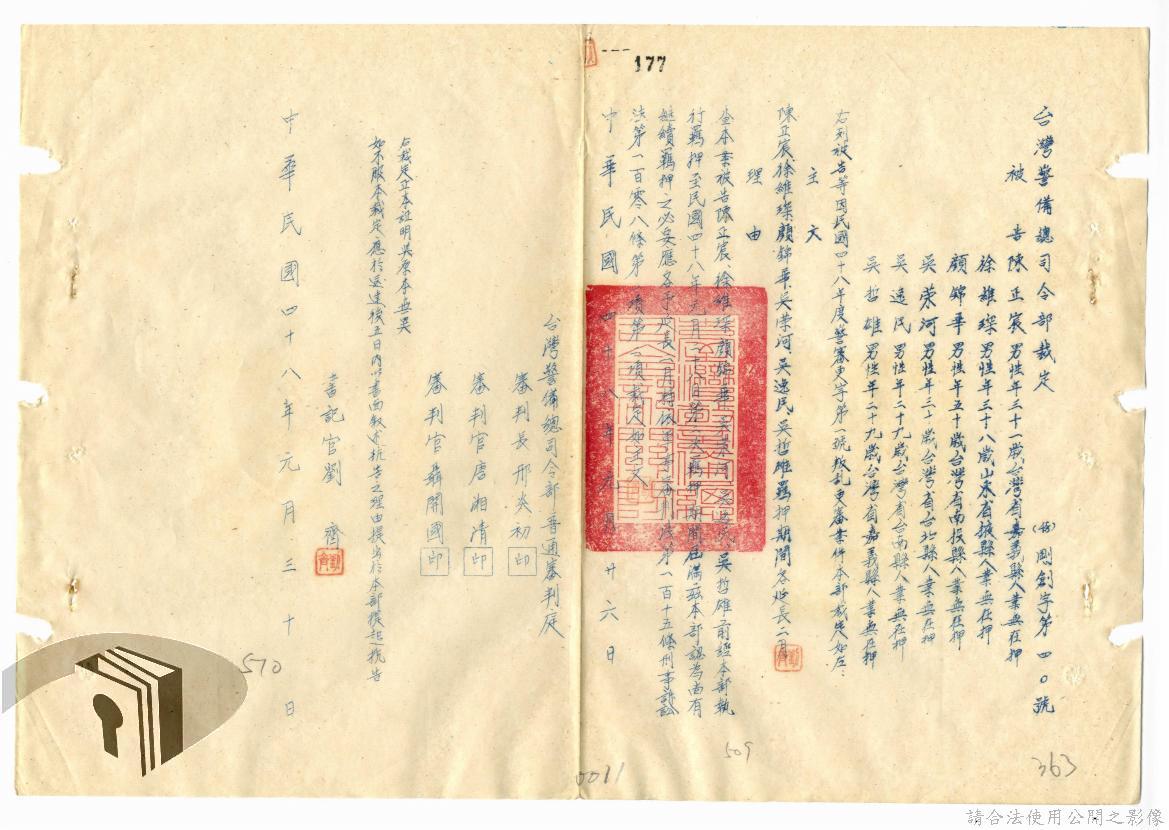 177
台灣警備總司令部裁定
(48)剛創字第四〇號
被告陳正宸男性年三十一歲台灣省嘉義縣人業無在押
徐維琛男性年三十八歲山東省掖縣人業無在押
顏錦華男性年五十歲台灣省南投縣人業無在押
吳榮河男性年三十歲台灣省台北縣人業無在押
吳逸民男性年二十九歲台灣省台南縣人業無在押
吳哲雄男性年二十九歲台灣省嘉義縣人業無在押
右列被告等因民國四十八年度警審更字第一號叛乱更審案件本部裁定如左:
主文
陳正宸徐維琛顏錦華吳榮河吳逸民吳哲雄羈押期間各延長二月
理由
查本案被告陳正宸、徐維琛顏錦華吳榮河吳逸民吳哲雄前經本部執
行羈押至民國四十八年元月 日 羈押期間屆滿茲本部認為尚有
繼續羈押之必要應各予延長二月特依 第一百十五條刑事訴訟
法第一百零八條第 項第 項裁定如主文
中華民國四十八年元月廿六日
台灣警備總司令部普通審判庭
審判長邢炎初印
審判官唐湘清印
審判官聶開國印
右裁定正本証明與原本無異
如不服本裁定應於送達後五日內以書面敘述抗告之理由提出於本部提起抗告
書記官劉齊
中華民國四十八年元月三十日
570
509
0011
363
請合法使用公開之影像